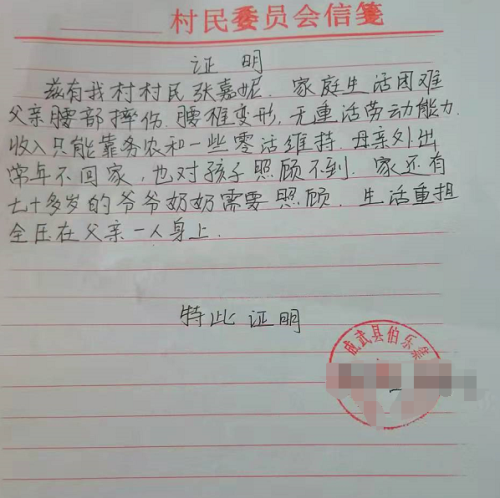 村民委员会信笺
证明
兹有我村村民张嘉妮. 家庭生活困难
父亲腰部摔伤. 腰椎变形. 无重活劳动能力.
收入只能靠务农和一些零活维持. 母亲外出
常年不回家, 也对孩子照顾不到. 家还有
七十多岁的爷爷奶奶需要照顾. 生活重担
全压在父亲一人身上.
特此证明
成武县伯乐